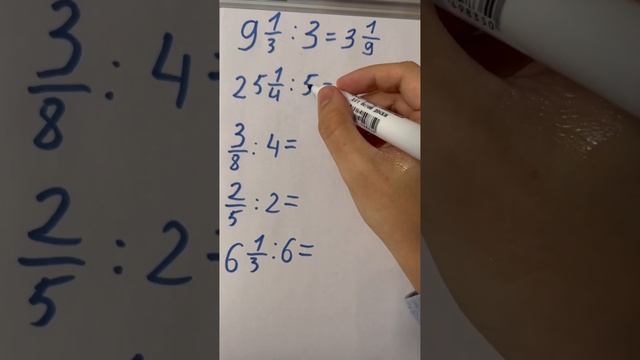 9 1/3 : 3 = 3 1/9
25 1/4 : 5 =
3/8 : 4 =
2/5 : 2 =
6 1/3 : 6 =